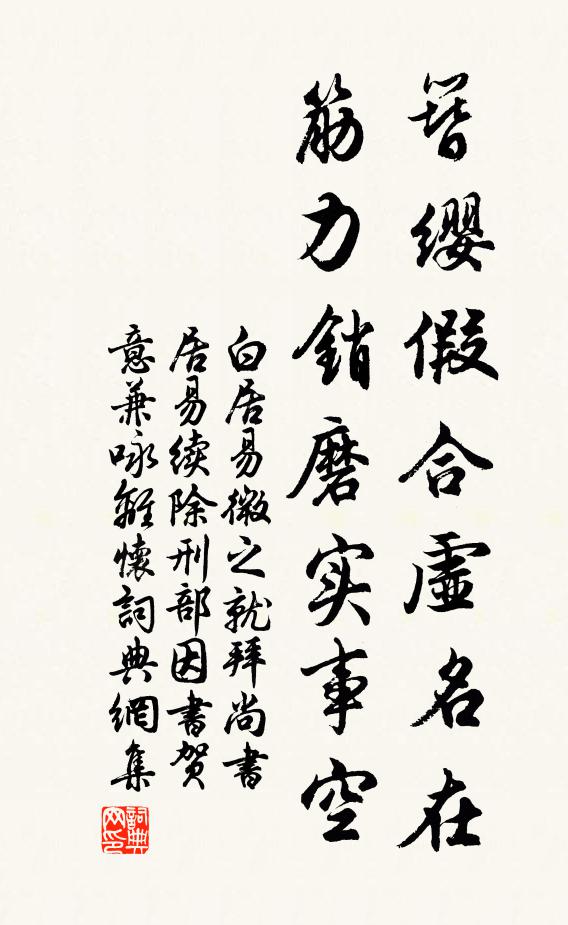 簪缨假合虚名在
筋力銷磨实事空
白居易微之就拜尚書
居易续除刑部因書贺
意兼咏離懷詞典網集
詞典
网印